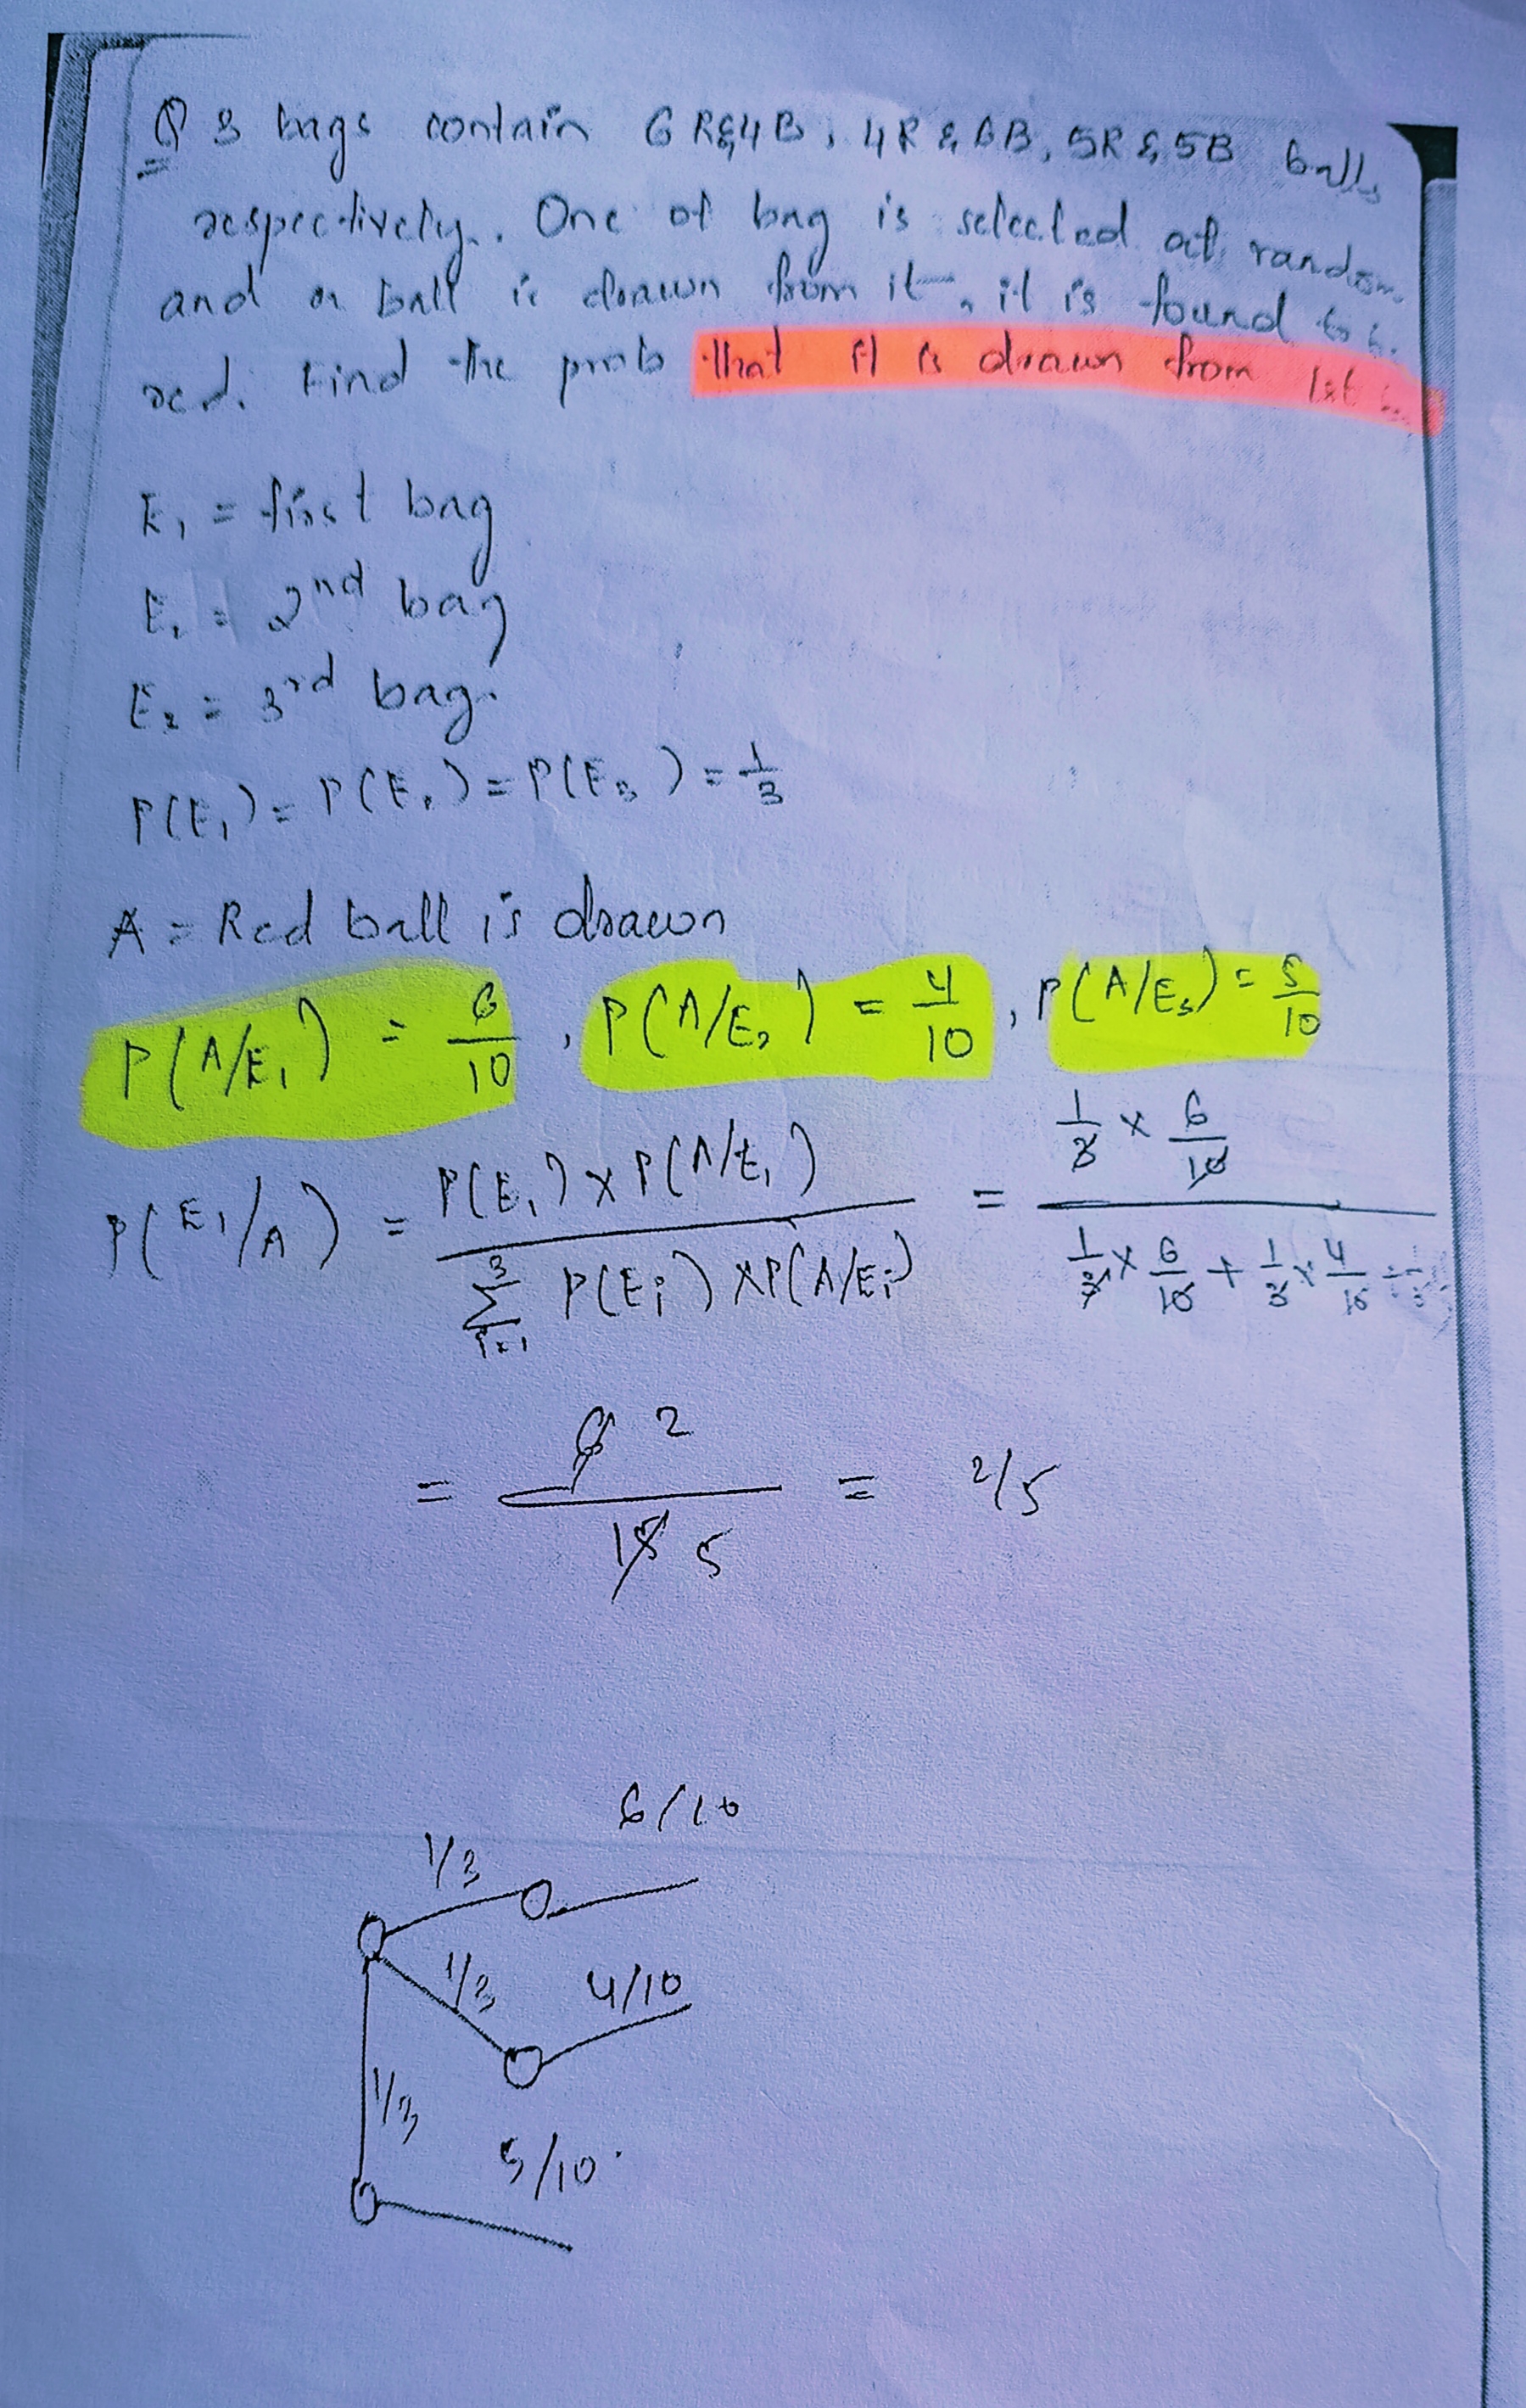 Q 3 bags contain 6R&4B, 4R & 6B, 5R & 5B balls
respectively. One of bag is selected at random
and a ball is drawn from it, it is found to be
red. Find the prob that it is drawn from 1st
E₁ = first bag
E₂ = 2nd bag
E₂ = 3rd bag.
P(E₁) = P(E₂) = P(E₃) = 1/3
A = Red ball is drawn
P(A/E₁) = 6/10, P(A/E₂) = 4/10, P(A/E₃) = 5/10
P(E₁/A) = P(E₁) × P(A/E₁) / ∑ᵢ₌₁³ P(Eᵢ) × P(A/Eᵢ) = 1/3 × 6/10 / 1/3 × 6/10 + 1/3 × 4/10 +
= 6 2 / 15 5 = 2/5
6/10
1/3
1/3 4/10
1/3
5/10